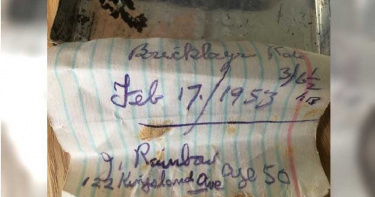 Bricklayr Rate
3/6 1/2
HR
Feb 17./1953
J. Rainbow Age 50
122 Kingsland Ave